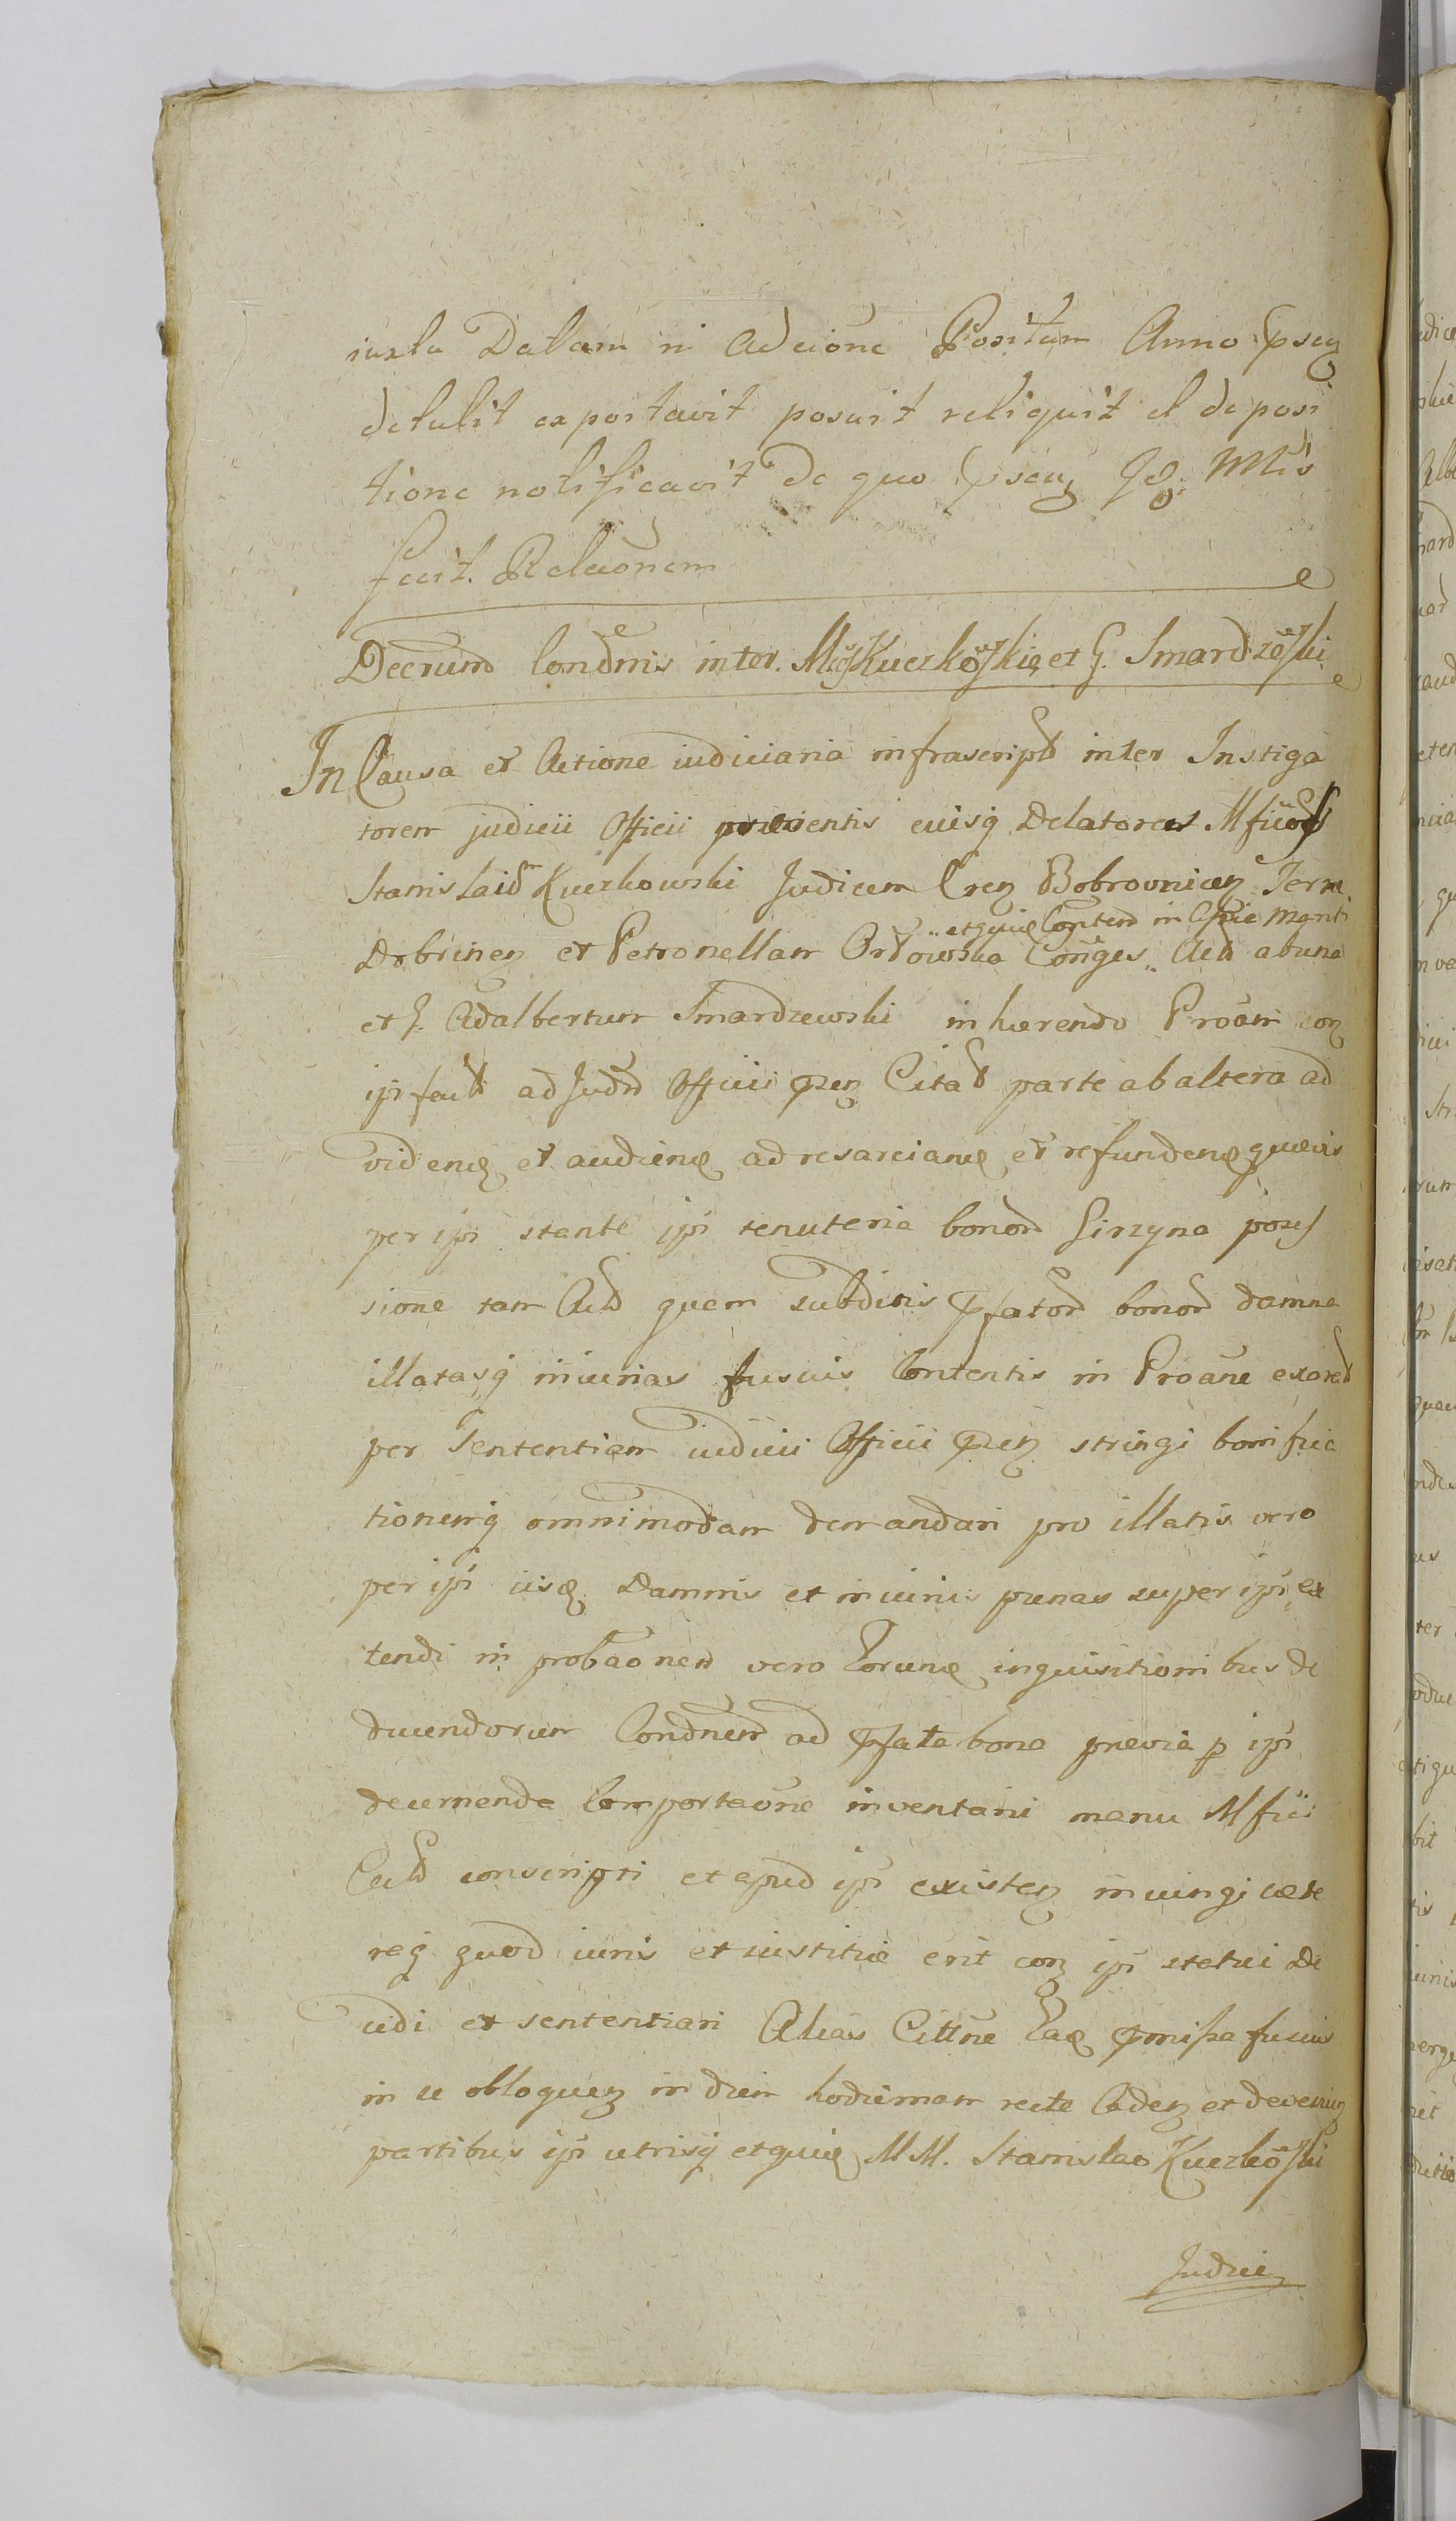 iuxta Datam in Adcione Positam Anno pseq
detulit exportavit posuit reliquit et deposi
tione notificavit De quo pseq Jdz. Mtis
fecit. Relaonem
Decrum Condnis inter. Kuczkoski et G. Smardzeski
In Causa et Actione iudiciaria infrascript inter Instiga
torem judicii Officii praesentis eiusq Delatores Mficos
Stanislaum Kuczkowski Judicem Cren Bobrovnicen Terrae
etquie Content in Asscie Mgnti
Dobrinen et Petronellam Orłowska Conges Act ab una
et G. Adalbertum Smardzewski inhaerendo Proam con
ipi fact ad Judm Officii pen Citat parte ab altera ad
videnq et audienq ad resarcianq et refundenq quaevis
per ipi stante ipi tenuteria bonor Girzyna poses
sione tam Act quem subditis pfator bonor damna
illatasq iniurias fusius Contentis in Proane exared
per Sententiam iudicii Officii pen stringi bonifica
tionemq omnimodam demandari pro illatis vero
per ipi iisq Damnis et iniuriis paenas super ipi ex
tendi in probaonem vero Eorunq inquisitionibus de
ducendorum Condnem ad pfata bona praevia p ipi
decernenda Comportaone inventarii manu Mfici
conscripti et apud ipi existen iniungi caete
req quod iuris et iustitiae erit con ipi statui De
cidi et sententiari Alias Cittne Eaq pmissa fusius
in se obloquen in diem hodiernam recte Caden et devenien
partibus ipi utrisq etquiq MM. Stanislao Kuczkoski
Judice